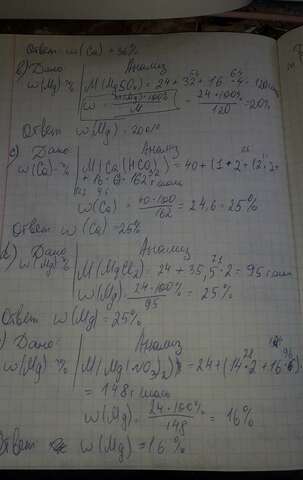 Ответ w(Ca) = 36%
b) Дано Анализ
w(Mg) -% M(MgSO₄) = 24 + 32 + 16 · 4 = 120
w = · 100% / M = 24 · 100% / 120 = 20%
Ответ w(Mg) = 20%
c) Дано Анализ
w(Ca) -% M(Ca(HCO₃)₂) = 40 + (1 · 2 + 12 · 2 +
+ 16 · 6 = 162 г/моль
w(Ca) = 40 · 100 / 162 = 24,6 = 25%
Ответ w(Ca) = 25%
d) Дано Анализ
w(Mg) % M(MgCl₂) = 24 + 35,5 · 2 = 95 г/моль
w(Mg) = 24 · 100% / 95 = 25%
Ответ w(Mg) = 25%
) Дано Анализ
w(Mg) -% M(Mg(NO₃)₂) = 24 + (14 · 2 + 16 · 6)
= 148 г/моль
w(Mg) = 24 · 100% / 148 = 16%
Ответ w(Mg) = 16%